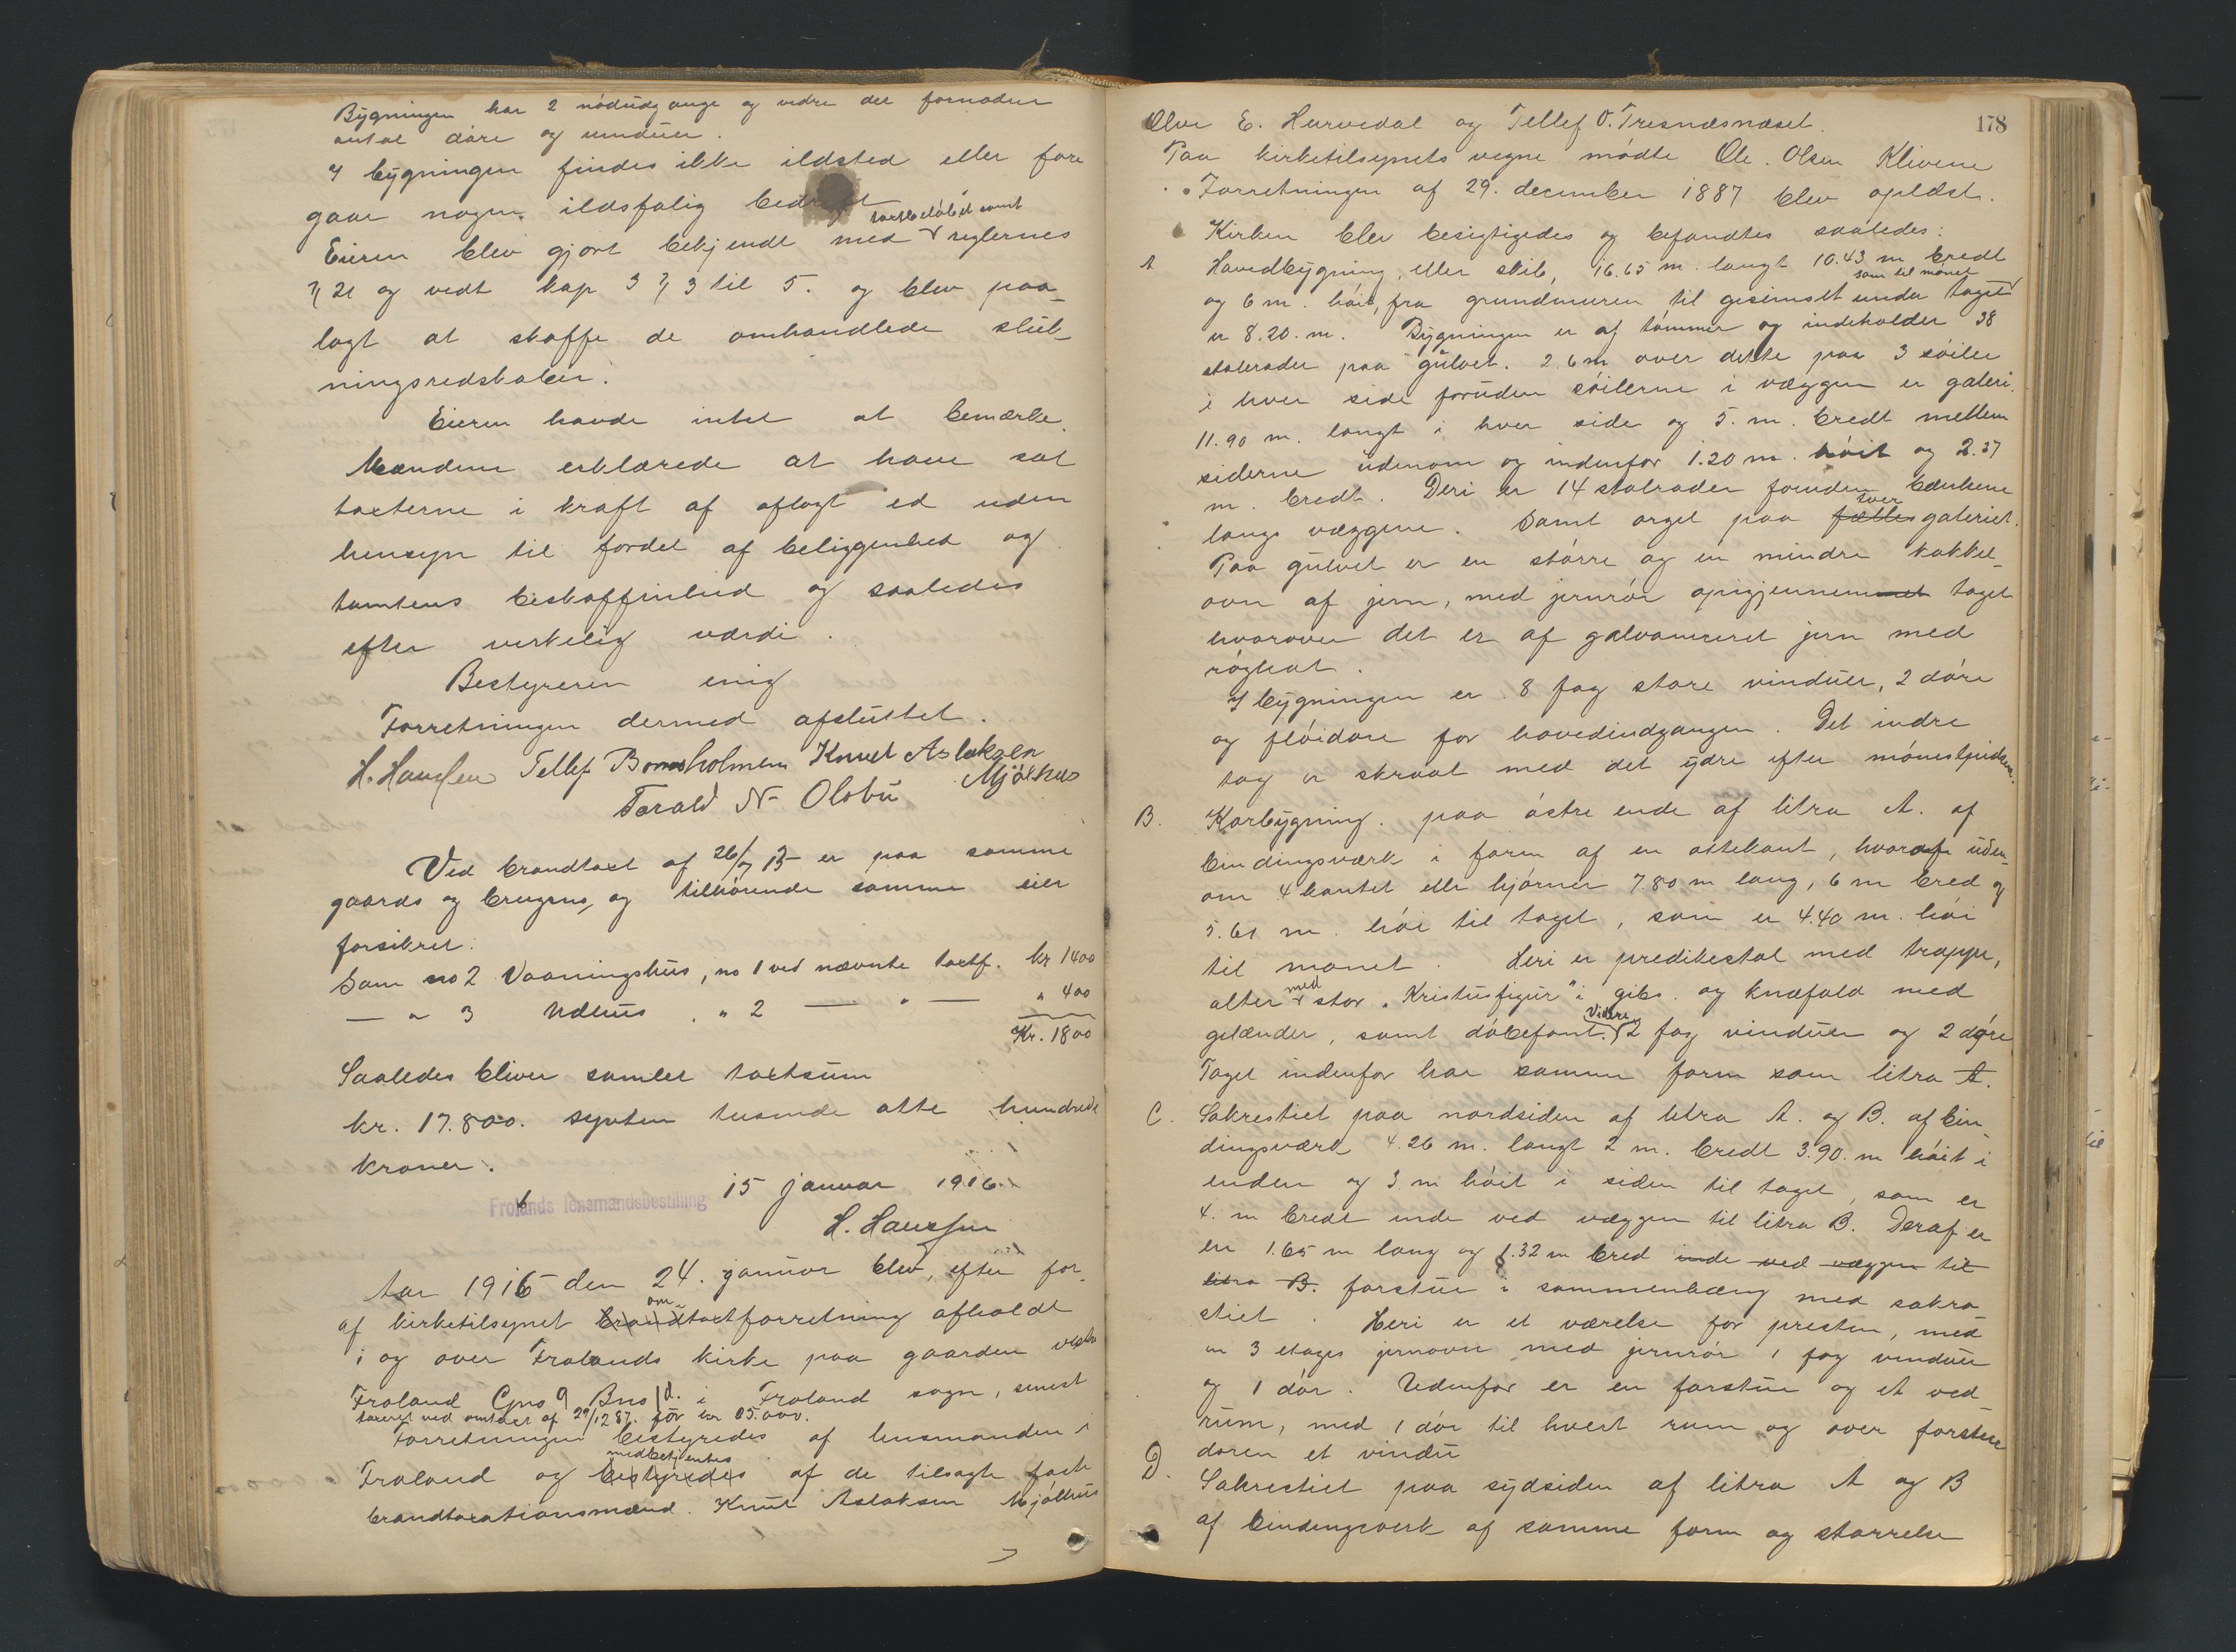 Bygningen har 2 nödudgange og vidre det fornødne
antal döre og vinduer.
I bygningen findes ikke ildsted eller fore
gaar nogen ildsfalig bedrift
taxtbelöbet samt
Eieren blev gjort bekjendt med reglernes
§ 21 og vedt kap 3 § 3 til 5. og blev paa-
lagt at skaffe de omhandlede sluk-
ningsredskaber.
Eieren havde intet at bemærke.
Mændene erklærede at have sat
taxterne i kraft af aflagt ed uden
hensyn til fordel af beliggenhed og
tomtens beskaffenhed og saaledes
efter virkelig værdi.
Bestyreren enig
Forretningen dermed afsluttet.
H. Haussen Tellef Bomsholmen Knut Aslaksen
Mjölhus
Torald N. Olsbu
Ved brandtaxt af 26/7 13 er paa samme
gaards og brugsno, og tilhörende samme eier
forsikret:
Som no 2 Vaaningshus, no 1 ved nævnte taxtf. kr 1400
— " 3 Udhus " 2 — " — " 400
Kr. 1800
Saaledes bliver samlet taxtsum
kr. 17.800. sytten tusinde otte hundrede
kroner.
Frolands lensmandsbestilling 15 januar 1916.
H. Haussen
Aar 1916 den 24. januar blev, efter for-
om-
af kirketilsynet brandtaxtforretning afholdt
i og over Frolands kirke paa gaarden
Froland Gno 9 Bno 1 d. i Froland sogn, senest
taxeret ved omtaxt af 29/12 87. for kr 05.000.
Forretningen bestyredes af lensmanden i
medbetjentes
Froland og bestyredes af de tilsagte faste
brandtaxationsmænd. Knut Aslaksen Mjölhus
178
Olve E. Hurvedal og Tellef O. Tresnæsnæset.
Paa kirketilsynets vegne mödte Ole Olsen Klivene
Forretningen af 29. december 1887 blev oplæst.
Kirken blev besigtigedes og befandtes saaledes:
A Hovedbygning eller skib, 16.65 m. langt 10.43 m bredt
som til mönet
og 6 m. höit, fra grundmuren til gesimset under taget
er 8.20. m. Bygningen er af tömmer og indeholder 38
stolerader paa gulvet. 2.6 m over dette paa 3 söiler
i hver side foruden söilerne i væggen er galeri.
11.90 m. langt i hver side og 5. m. bredt mellem
siderne udenom og indenfor 1.20 m. höit og 2.37
m. bredt. Deri er 14 stolrader foruden bænkene
tver
langs væggene. Samt orgel paa fælles galeriet.
Paa gulvet er en större og en mindre kakkel-
ovn af jern, med jernrör opigjennem taget
hvorover det er af galvaniceret jern med
röghat.
I bygningen er 8 fag store vinduer, 2 döre
og flöidöre for hovedindgangen. Det indre
tag er skraat med det ydre efter
B. Korbygning. paa östre ende af litra A. af
bindingsværk i form af en ottekant, hvoraf uden-
om 4 kantet eller hjörner 7.80 m lang, 6 m bred og
5.61 m. höi til taget, som er 4.40 m. höi
til mönet. Heri er predikestol med trappe,
med
alter stor "Kristusfigur" i gibs. og knæfald med
Videre
gelænder, samt döbefont. 2 fag vinduer og 2 döre
Taget indenfor har samme form som litra A.
C. Sakrestiet paa nordsiden af litra A. og B. af bin-
dingsværk 4.26 m. langt 2 m. bredt 3.90. m höit i
enden og 3 m höit i siden til taget, som er
4. m bredt inde ved væggen til litra B. Deraf er
en 1.65 m lang og 1.32 m bred inde ved væggen til
litra B. forstue i sammenhæng med sakre
stiet. Heri er et værelse for presten, med
en 3 etages jernovn med jernrör 1 fag vinduer
og 1 dör. Udenfor er en forstue og et ved-
rum, med 1 dör til hvert rum og over forstue
dören et vindu
D. Sakrestiet paa sydsiden af litra A og B
af bindingsverk af samme form og störrelse